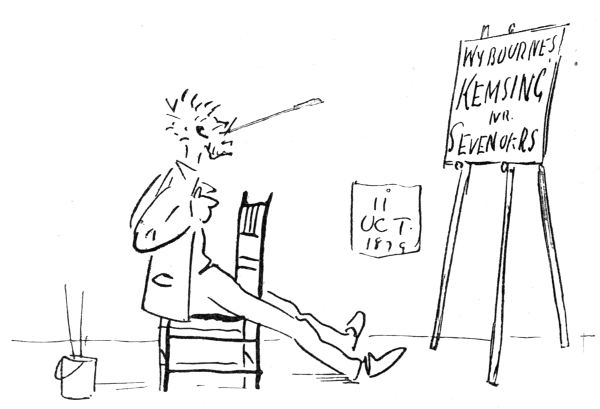 WYBOURNES
KEMSING
NR.
SEVENOKS
11
OCT.
1879